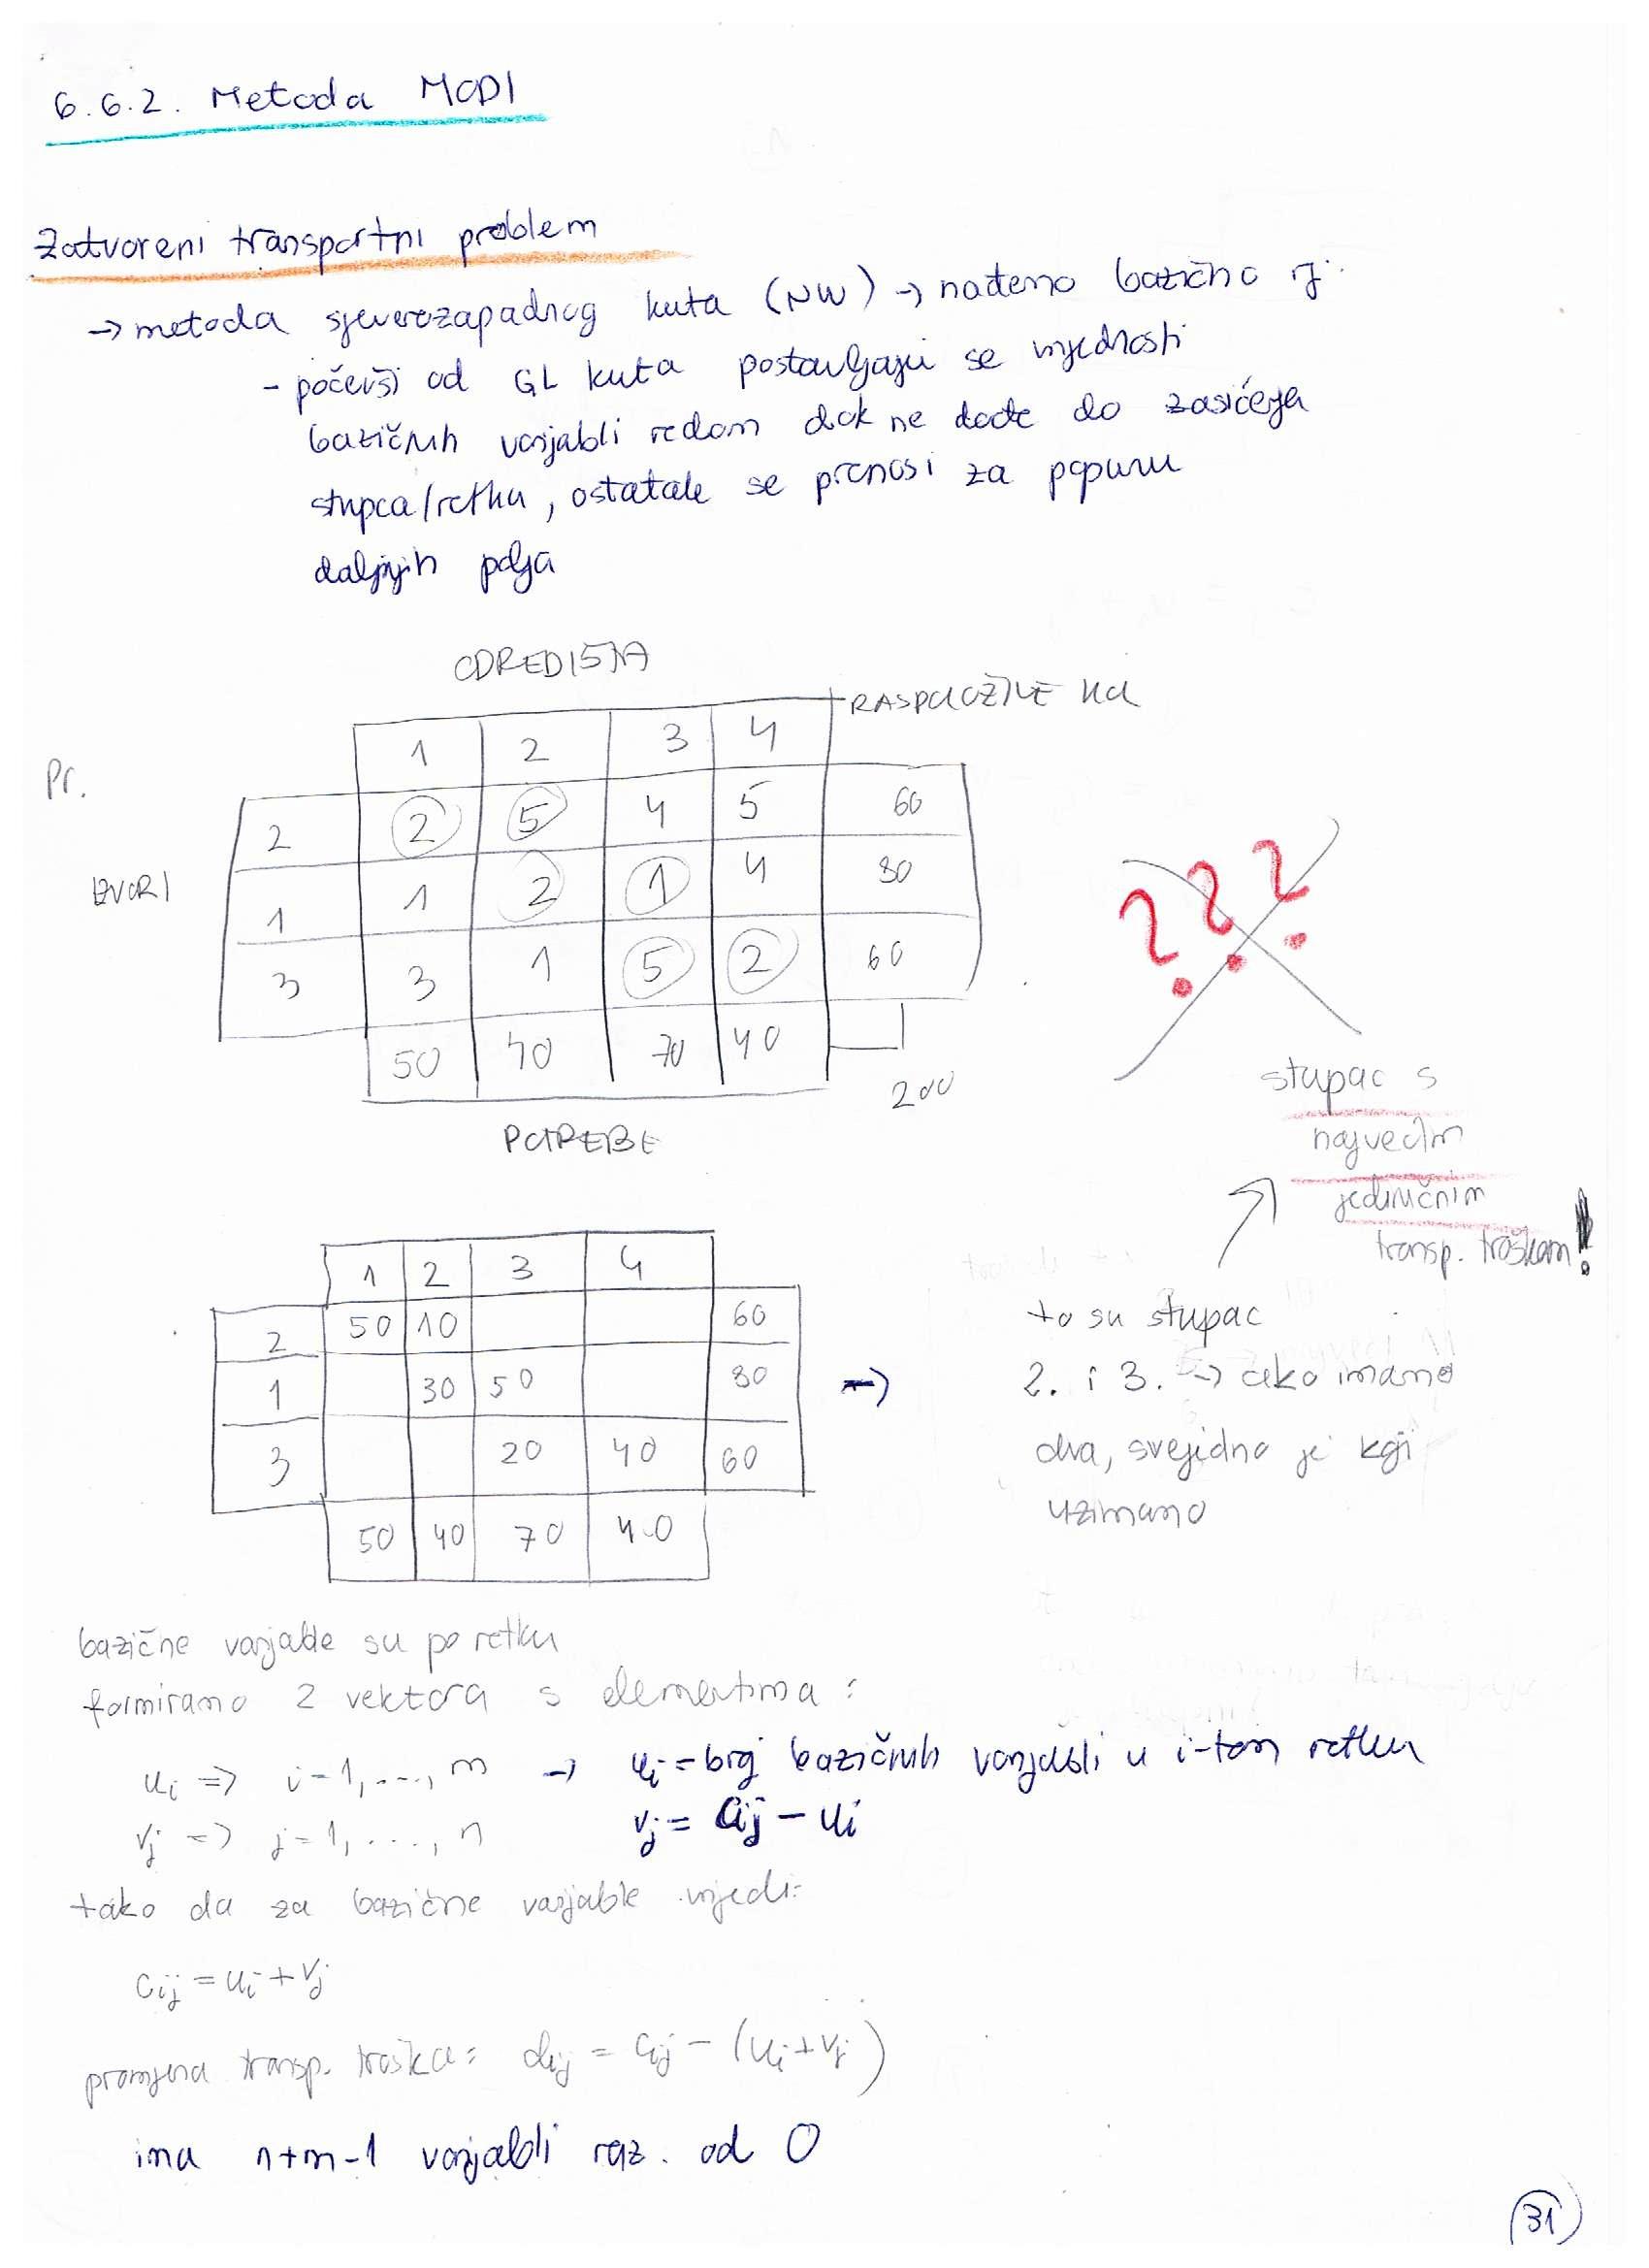 6.6.2. Metoda MODI
Zatvoreni transportni problem
→ metoda sjeverozapadnog kuta (NW) → nađemo bazično rj.
- počevši od GL kuta postavljaju se vrijednosti
bazičnih varijabli redom dok ne dođe do zasićenja
stupca/retka, ostatak se prenosi za popunu
daljnjih polja
ODREDIŠTA
RASPOLOŽIVE KOL
Pr.
1 2 3 4
2 2 5 4 5 60
IZVORI
1 1 2 1 4 80
3 3 1 5 2 60
50 40 70 40
200
POTREBE
???
stupac s
najvećim
jediničnim
transp. troškom!
1 2 3 4
2 50 10 60
1 30 50 80
3 20 40 60
50 40 70 40
→
to su stupac
2. i 3. → ako imamo
dva, svejedno je koji
uzimamo
bazične varijable su po retku
formiramo 2 vektora s elementima:
ui => i=1,...,m → ui = broj bazičnih varijabli u i-tom retku
vj => j=1,...,n vj = cij - ui
tako da za bazične varijable vrijedi:
cij = ui + vj
promjena transp. troška: dij = cij - (ui + vj)
ima n+m-1 varijabli raz. od 0
31